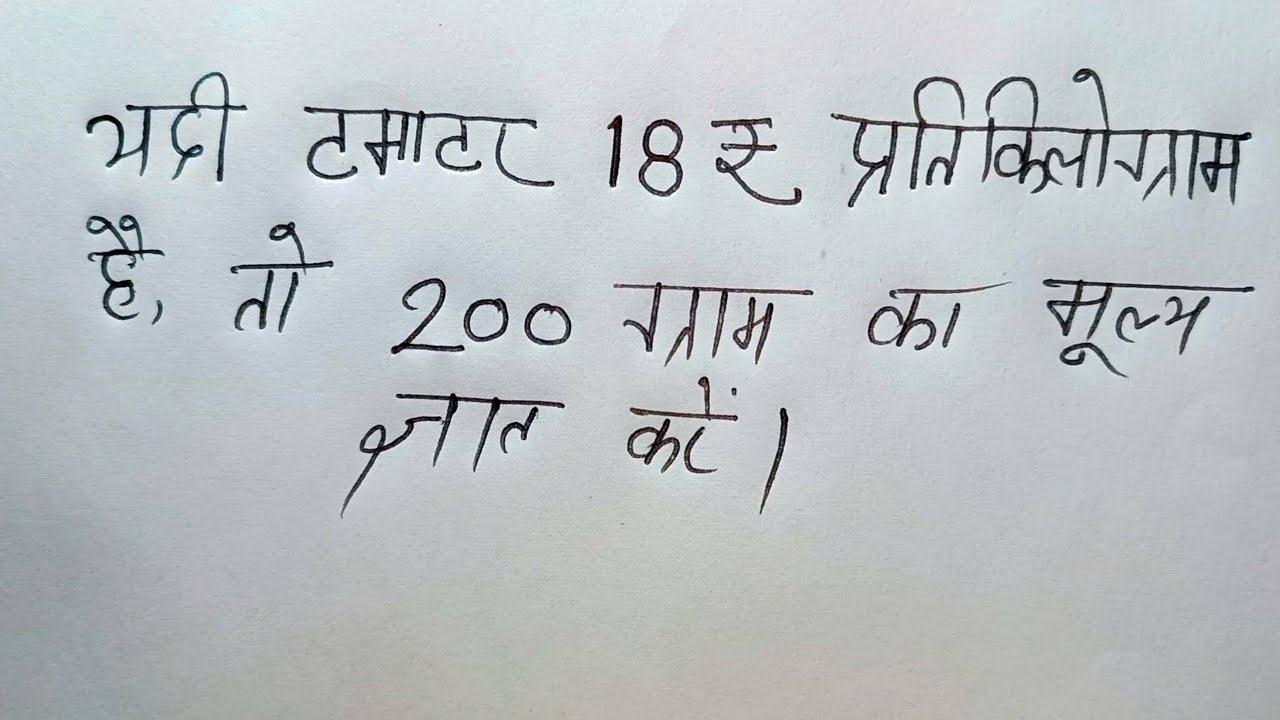 यदी टमाटर 18 रु प्रति किलोग्राम
है, तो 200 ग्राम का मूल्य
ज्ञात करें।